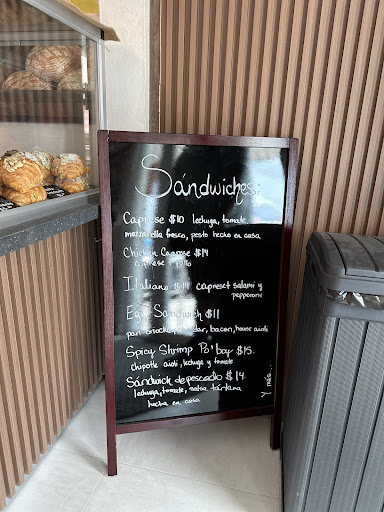 Sándwiches:
Caprese $10 lechuga, tomate
mozzarella fresca, pesto hecho en casa
Chicken Caprese $14
Caprese + pollo
Italiano $14 caprese + salami y
pepperoni
Egg Sandwich $11
pan brioche, cheddar, bacon, house aioli
Spicy Shrimp Po' boy $15.
chipotle aioli, lechuga y tomate
Sándwich de pescado $14.
lechuga, tomate, salsa tártara
hecha en casa
Y más...